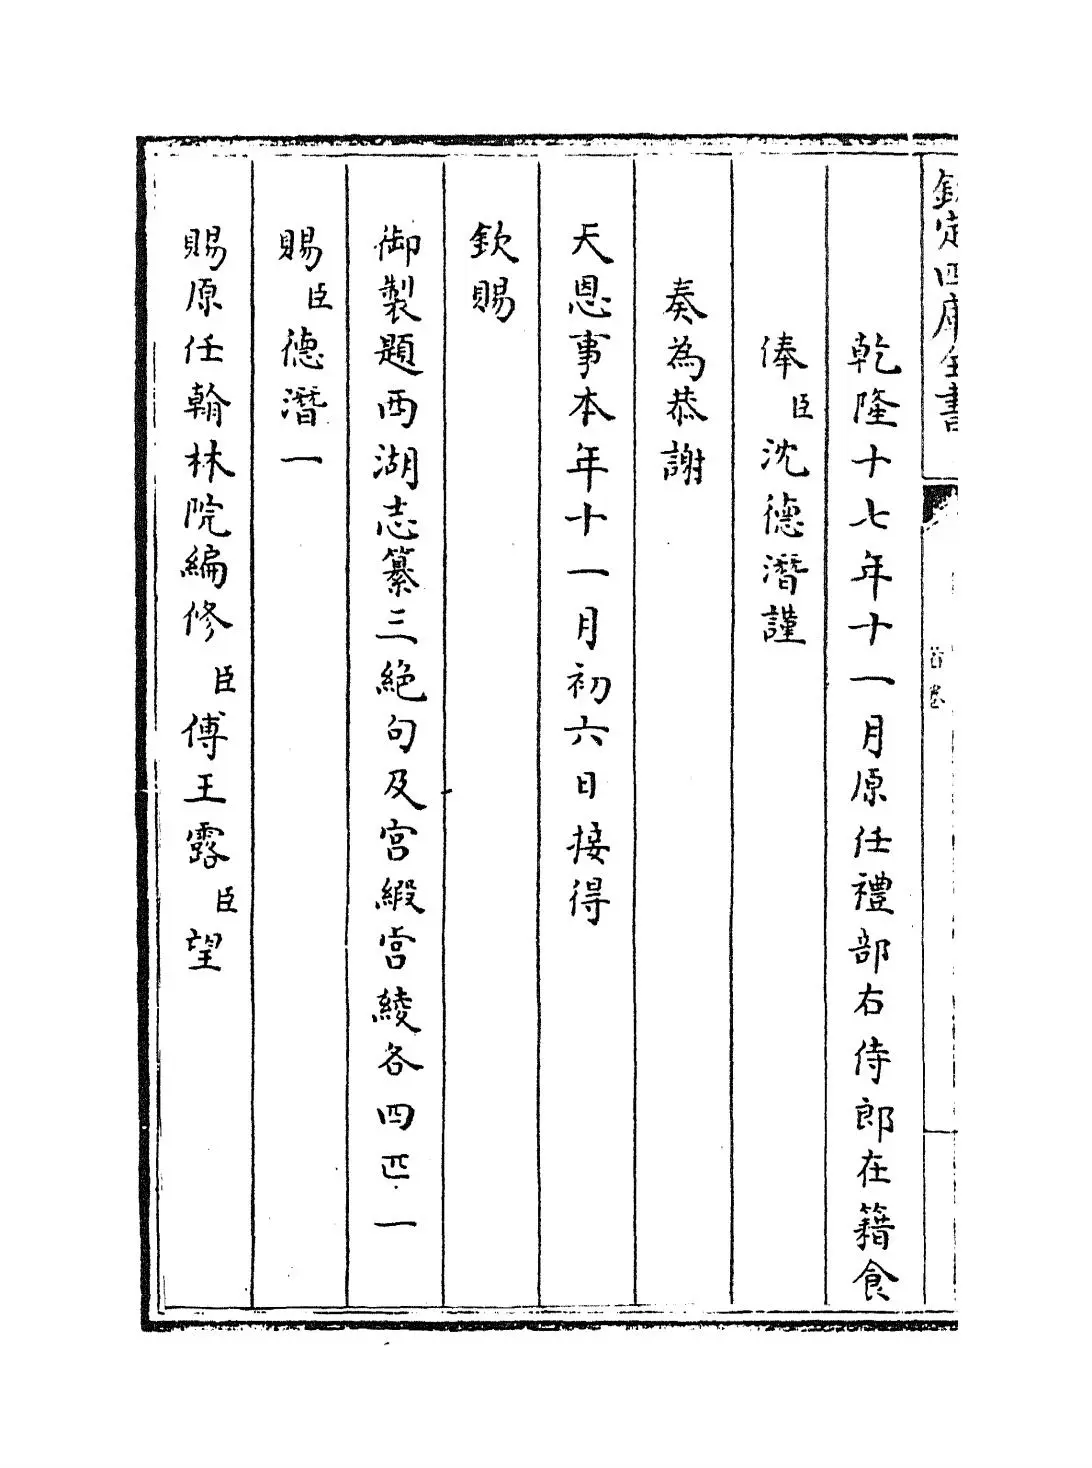 欽定四庫全書
首卷
乾隆十七年十一月原任禮部右侍郎在籍食
俸臣沈德潛謹
奏為恭謝
天恩事本年十一月初六日接得
欽賜
御製題西湖志纂三絶句及宮緞宮綾各四匹一
賜臣德潛一
賜原任翰林院編修臣傅王露臣望